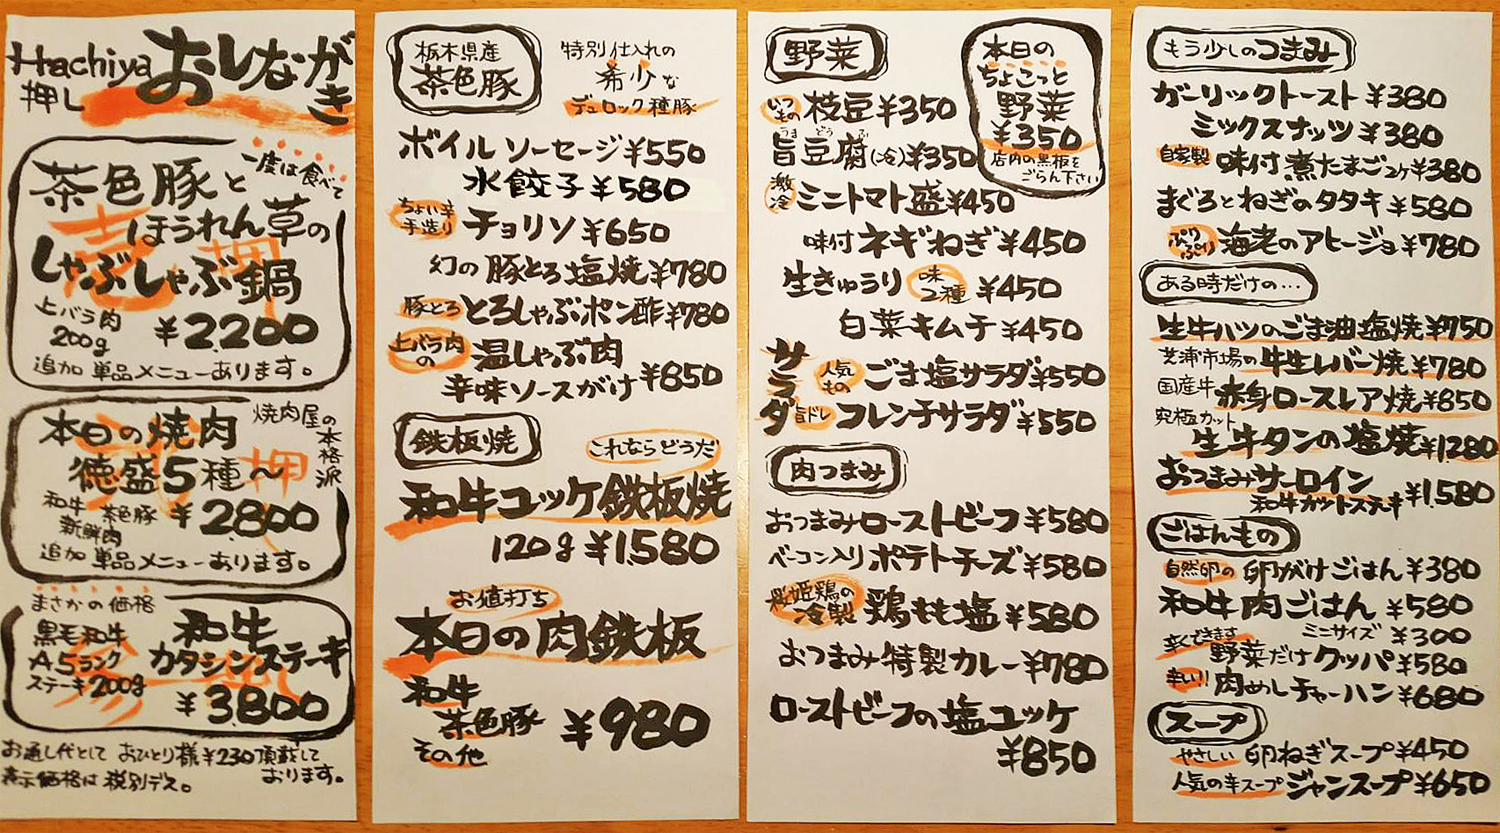 Hachiya
押し
おしながき
一度は食べて
茶色豚と
ほうれん草の
しゃぶしゃぶ鍋
上バラ肉
200g
¥2,200
追加 単品メニューあります。
焼肉屋の本格派
本日の焼肉
徳盛5種〜
和牛 茶色豚
新鮮肉
¥2800
追加 単品メニューあります。
まさかの価格
黒毛和牛
A5ランク
ステーキ200g
和牛
カタシンステーキ
¥3,800
お通し代として おひとり様¥230頂戴して
おります。
表示価格は税別デス。
栃木県産
茶色豚
特別仕入れの
希少な
デュロック種豚
ボイルソーセージ¥550
水餃子¥580
ちょい辛
手造り
チョリソ¥650
幻の豚とろ塩焼¥780
豚とろ とろしゃぶポン酢¥780
上バラ肉の
温しゃぶ肉
辛味ソースがけ
¥850
鉄板焼
これならどうだ
和牛ユッケ鉄板焼
120g¥1,580
お値打ち
本日の肉鉄板
和牛
茶色豚
その他
¥980
野菜
本日の
ちょこっと
野菜
¥350
店内の黒板を
ごらん下さい
いつもの 枝豆¥350
うま どうふ
旨豆腐(冷)¥350
激冷 ミニトマト盛¥450
味付ネギねぎ¥450
生きゅうり 味2種 ¥450
白菜キムチ¥450
サラダ
人気もの ごま塩サラダ¥550
旨ドレ フレンチサラダ¥550
肉つまみ
おつまみローストビーフ¥580
ベーコン入りポテトチーズ¥580
桜姫鶏の
冷製
鶏もも塩¥580
おつまみ特製カレー¥780
ローストビーフの塩ユッケ
¥850
もう少しのつまみ
ガーリックトースト¥380
ミックスナッツ¥380
自家製 味付煮たまご2ヶ¥380
まぐろとねぎのタタキ¥580
ぷりぷり 海老のアヒージョ¥780
ある時だけの…
生牛ハツのごま油塩焼¥750
芝浦市場の牛生レバー焼¥780
国産牛赤身ロースレア焼¥850
究極カット
生牛タンの塩焼¥1280
おつまみサーロイン
和牛カットステーキ
¥1,580
ごはんもの
自然卵の 卵がけごはん¥380
和牛肉ごはん¥580
ミニサイズ ¥300
辛くできます
野菜だけクッパ¥580
辛い!! 肉めしチャーハン¥680
スープ
やさしい 卵ねぎスープ¥450
人気の辛スープ ジャンスープ¥650